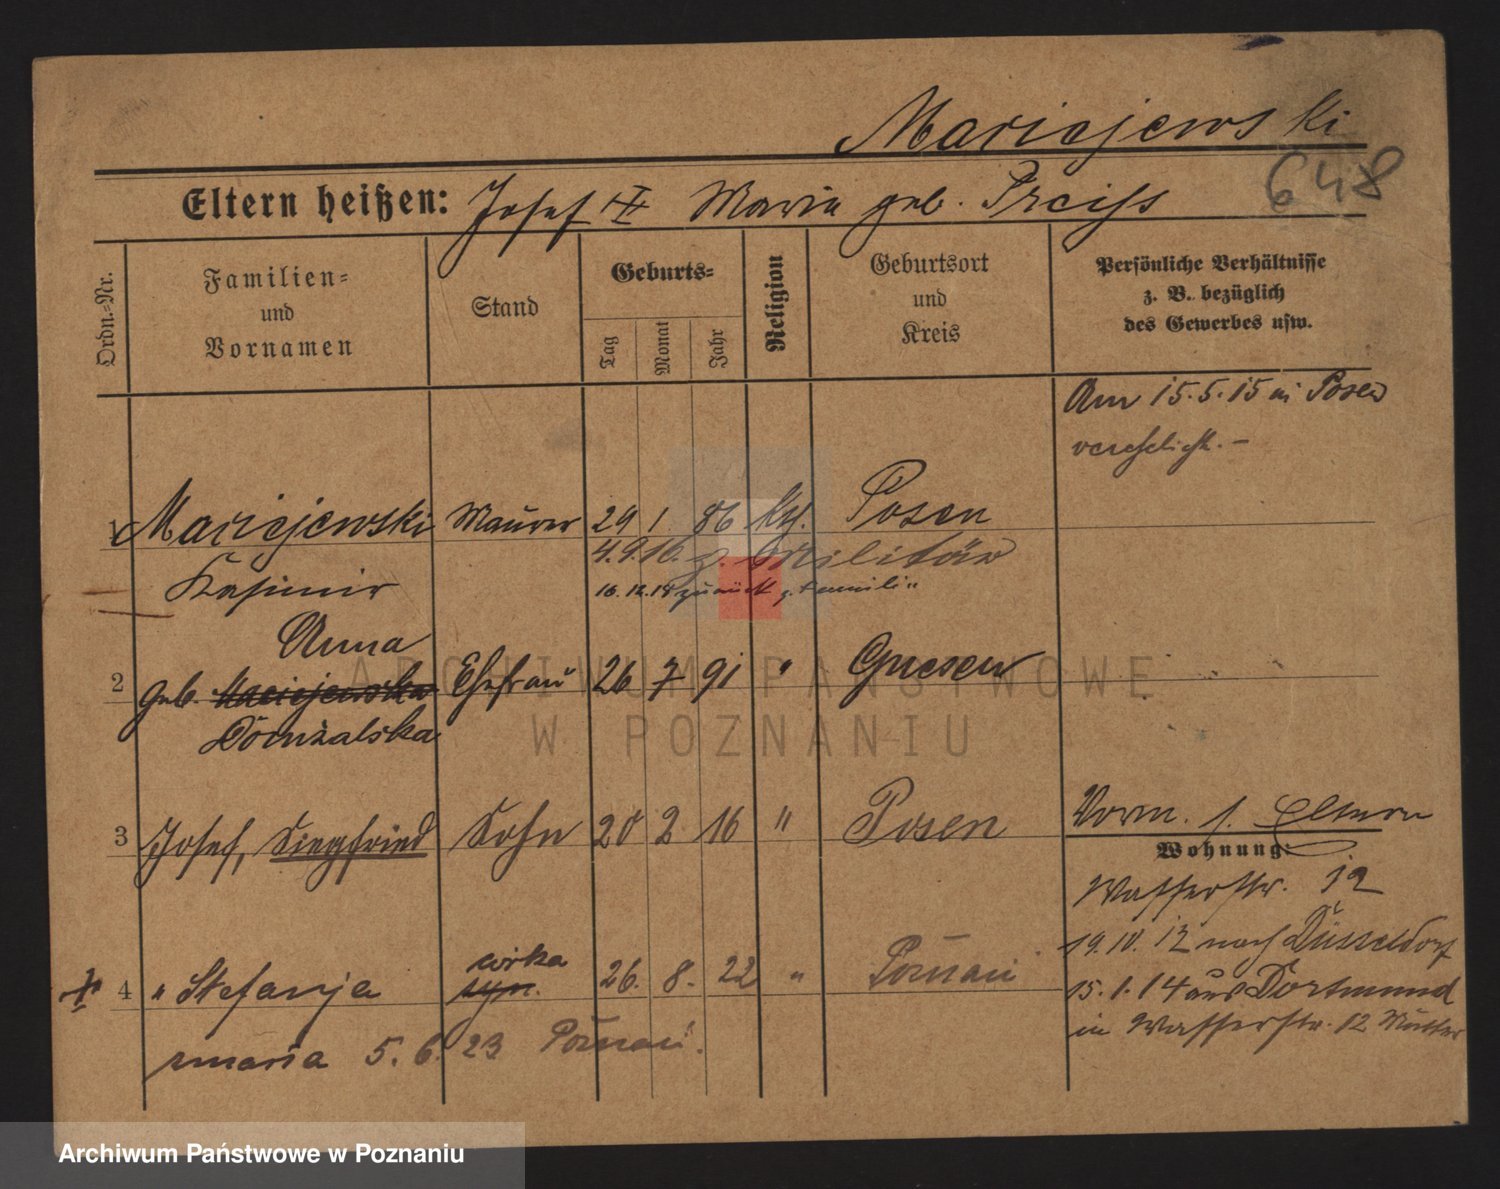 Maciejewski
648
Eltern heißen: Josef + Maria geb. Preiss
Ordn.=Nr.
Familien=
und
Vornamen
Stand
Geburts=
Tag
Monat
Jahr
Religion
Geburtsort
und
Kreis
Persönliche Verhältnisse
z. B. bezüglich
des Gewerbes usw.
Am 15.5.15 in Posen
verehelicht. –
1 Maciejewski Maurer 29 1 86 kth. Posen
Kasimir
4.9.16. z. Militär
16.12.18 zurück z. Familie
Anna
2 geb. Maciejewska Ehefrau 26 7 91 " Gnesen
Domżalska
3 Josef, Siegfried Sohn 20 2 16 " Posen
Vorm. s. Eltern
Wohnung:
Wasserstr. 12
19.10.12 nach Düsseldorf
15.1.14 aus Dortmund
in Wasserstr. 12 Mutter
córka
+ 4 " Stefanja syn. 26. 8. 22 " Poznań
zmarła 5. 6. 23 Poznań.
ARCHIWUM PAŃSTWOWE
W POZNANIU
Archiwum Państwowe w Poznaniu